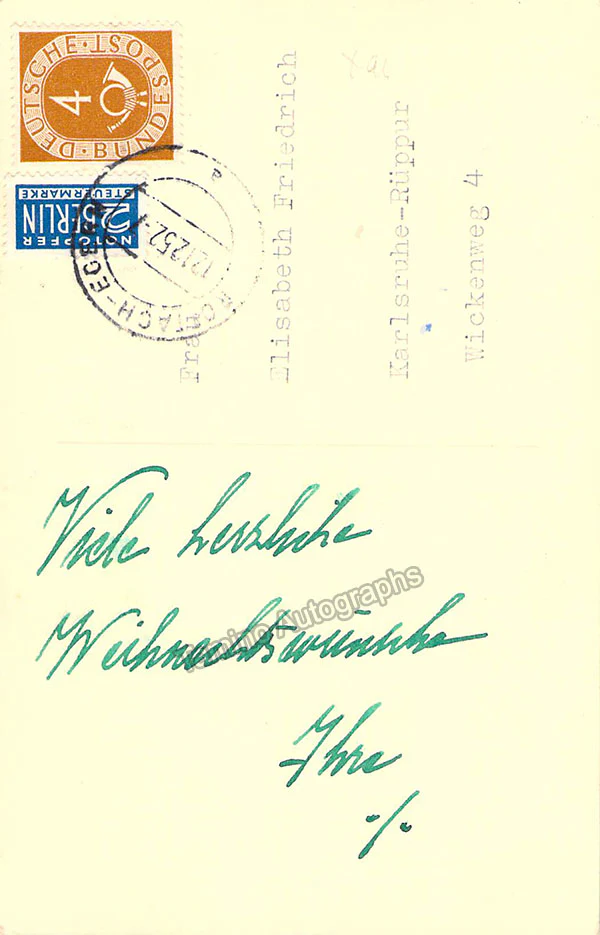 DEUTSCHE BUNDESPOST
4
NOTOPFER
2 BERLIN
STEUERMARKE
12.12.52.-7
Frau
Elisabeth Friedrich
Karlsruhe-Rüppur
Wickenweg 4
Viele herzliche
Weihnachtswünsche
Ihre
-/-
Tamino Autographs